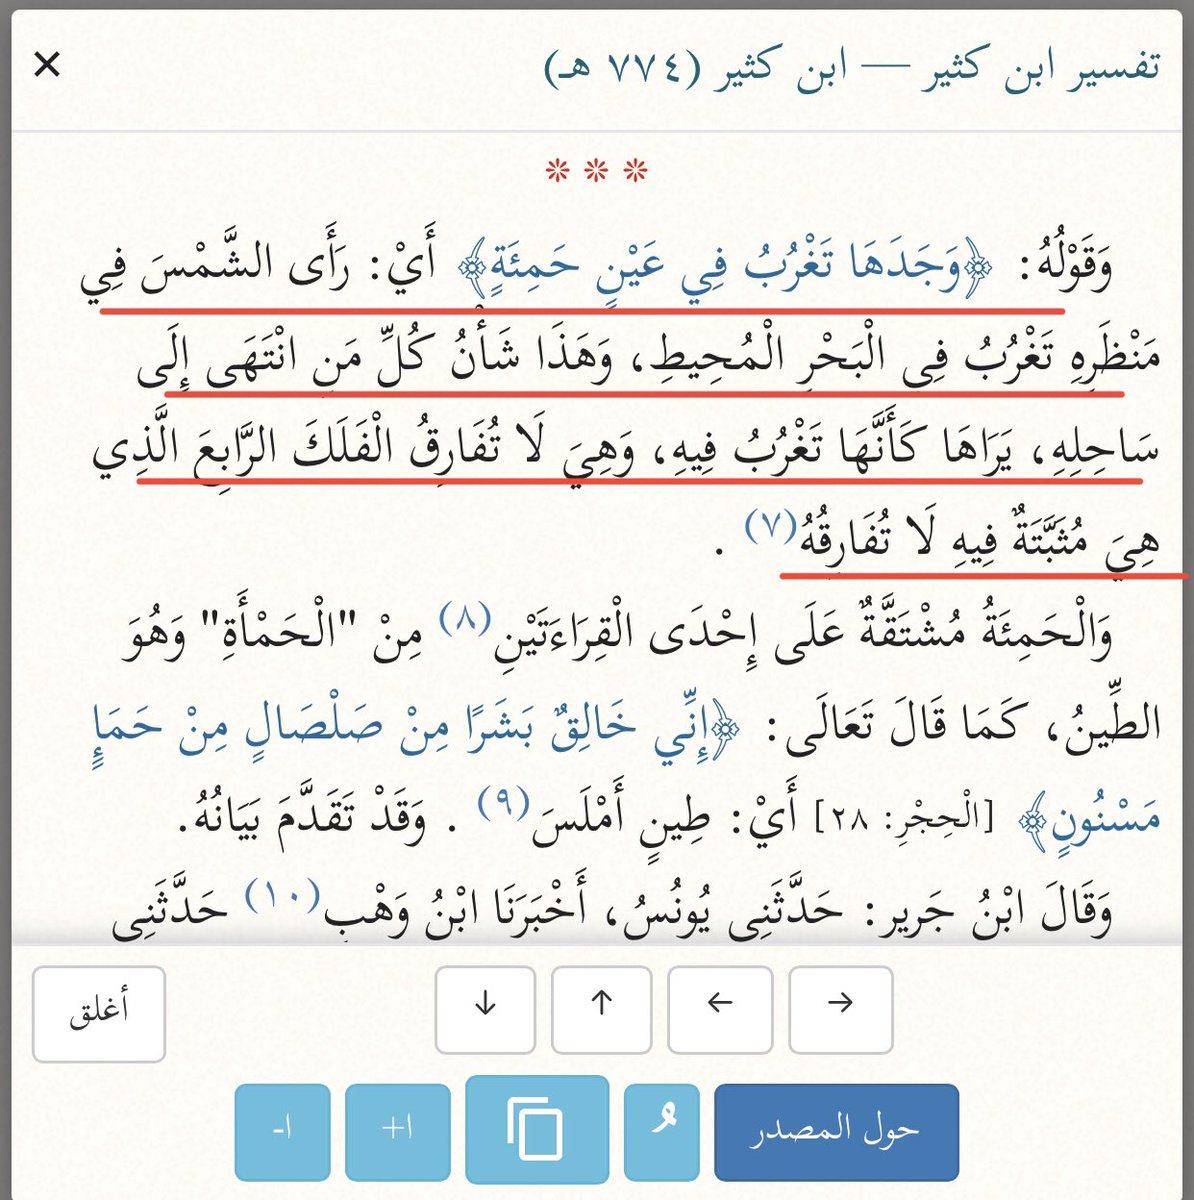 تفسير ابن كثير — ابن كثير (٧٧٤ هـ)
وَقَوْلُهُ: ﴿وَجَدَهَا تَغْرُبُ فِي عَيْنٍ حَمِئَةٍ﴾ أَيْ: رَأَى الشَّمْسَ فِي
مَنْظَرِهِ تَغْرُبُ فِي الْبَحْرِ الْمُحِيطِ، وَهَذَا شَأْنُ كُلِّ مَنِ انْتَهَى إِلَى
سَاحِلِهِ، يَرَاهَا كَأَنَّهَا تَغْرُبُ فِيهِ، وَهِيَ لَا تُفَارِقُ الْفَلَكَ الرَّابِعَ الَّذِي
هِيَ مُثَبَّتَةٌ فِيهِ لَا تُفَارِقُهُ(٧) .
وَالْحَمِئَةُ مُشْتَقَّةٌ عَلَى إِحْدَى الْقِرَاءَتَيْنِ(٨) مِنْ "الْحَمْأَةِ" وَهُوَ
الطِّينُ، كَمَا قَالَ تَعَالَى: ﴿إِنِّي خَالِقٌ بَشَرًا مِنْ صَلْصَالٍ مِنْ حَمَإٍ
مَسْنُونٍ﴾ [الْحِجْرِ: ٢٨] أَيْ: طِينٍ أَمْلَسَ(٩) . وَقَدْ تَقَدَّمَ بَيَانُهُ.
وَقَالَ ابْنُ جَرِيرٍ: حَدَّثَنِي يُونُسُ، أَخْبَرَنَا ابْنُ وَهْبٍ(١٠) حَدَّثَنِي
→ ← ↑ ↓ أغلق
حول المصدر ا+ ا-